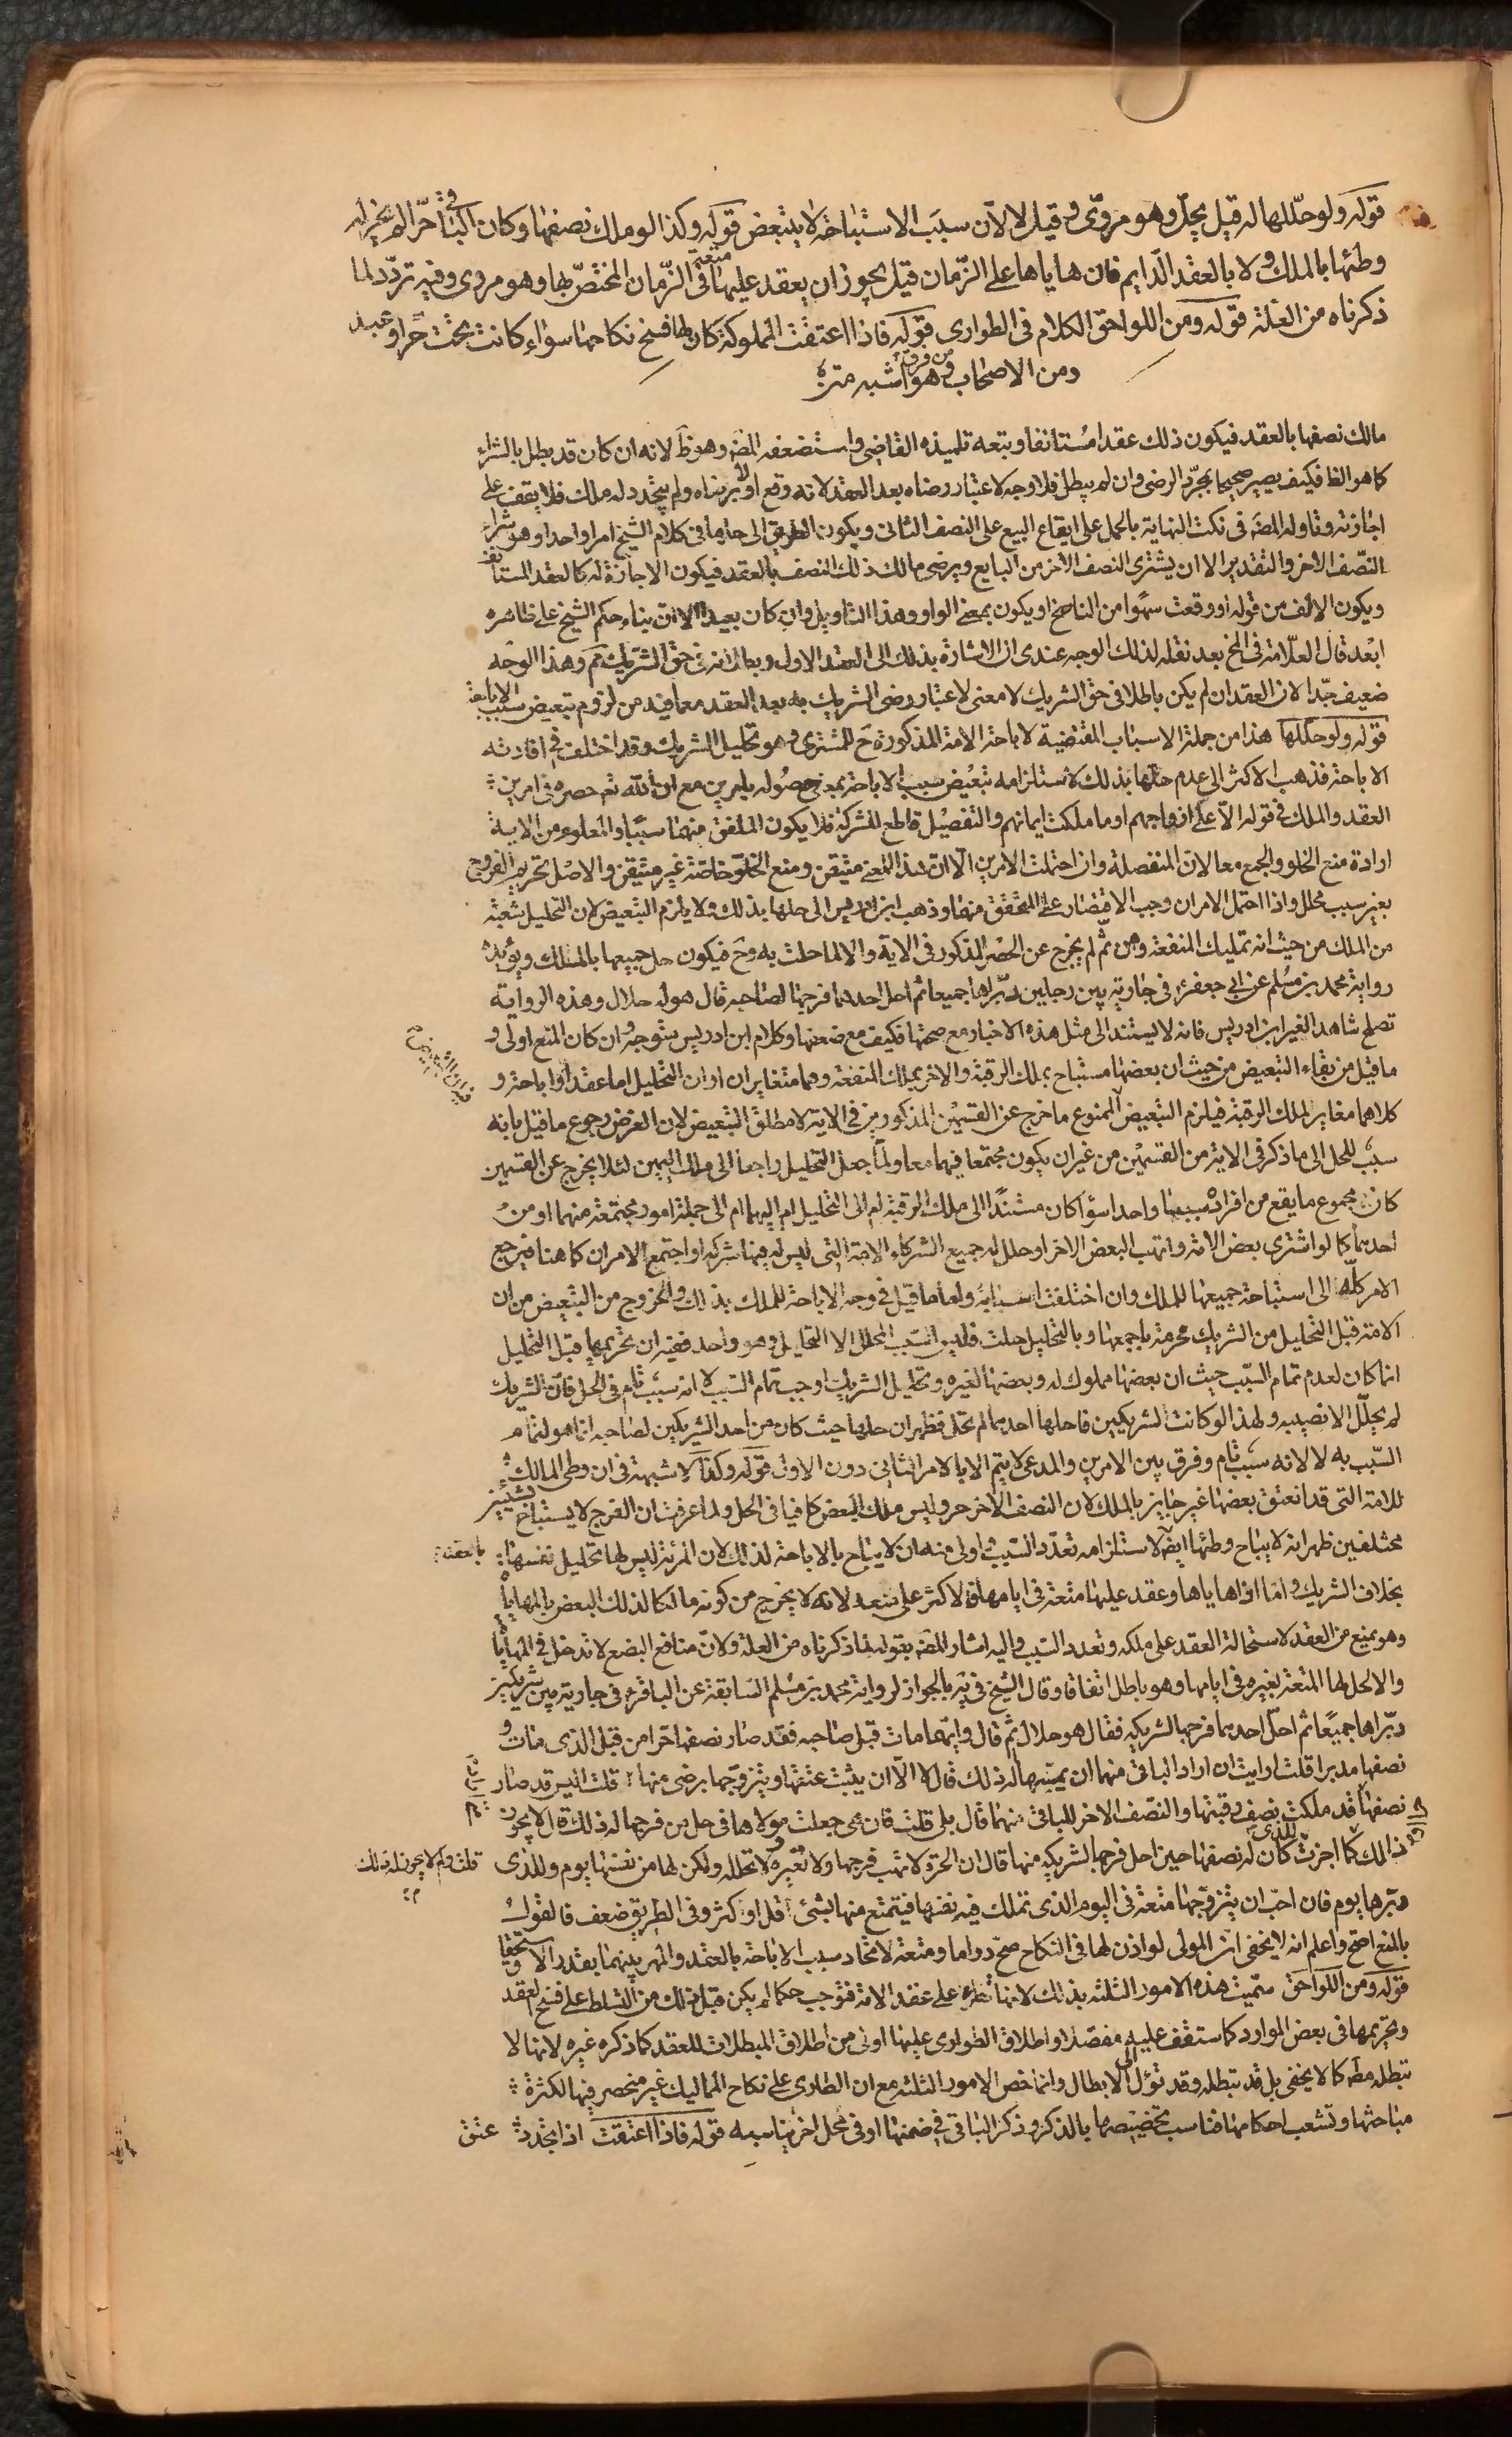 قوله ولو حللها له قيل يحل وهو مروى وقيل لا لان سبب الاستباحة لا يتبعض قوله وكذا لو ملك نصفها وكان الباقى حرا لم يجز له
وطئها بالملك ولا بالعقد الدايم فان هاياها على الزمان قيل يجوز ان يعقد عليها متعة فى الزمان المختص بها وهو مروى وفيه تردد لما
ذكرناه من العلة قوله ومن اللواحق الكلام فى الطوارى قوله فاذا اعتقت المملوكة كان لها فسخ نكاحها سواء كانت تحت حر او عبد
ومن الاصحاب من فرق وهو اشبه متن
مالك نصفها بالعقد فيكون ذلك عقدا مستانفا وتبعه تلميذه القاضى واستضعفه المصَ وهو ظَ لانه ان كان قد بطل بالشراء
كما هو الظا فكيف يصير صحيحا بمجرد الرضى وان لم يبطل فلا وجه لاعتبار رضاه بعد العقد لانه وقع اولا برضاه ولم يتجدد له ملك فلا يقف على
اجازته وتاوله المصَ فى نكت النهاية بالحمل على ايقاع البيع على النصف الثانى ويكون الطريق الى حلها فى كلام الشيخ امرا واحدا وهو شراء
النصف الاخر والتقدير الا ان يشترى النصف الاخر من البايع ويرضى مالك ذلك النصف بالعقد فيكون الاجازة له كالعقد المستانف
ويكون الالف من قوله او وقعت سهوا من الناسخ او يكون بمعنى الواو وهذا التاويل وان كان بعيدا الا ان بناء حكم الشيخ على ظاهره
ابعد قال العلامة فى المخ بعد نقله لذلك الوجه عندى ان الاشارة بذلك الى العقد الاول وبطلانه فى حق الشريك ثم وهذا الوجه
ضعيف جدا لان العقد ان لم يكن باطلا فى حق الشريك لا معنى لاعتبار رضى الشريك به بعد العقد مع ما فيه من لزوم تبعيض سبب الاباحة
قوله ولو حللها هذا من جملة الاسباب المقتضية لاباحة الامة المذكورة حَ للمشترى وهو تحليل الشريك وقد اختلف فى افادته
الاباحة فذهب الاكثر الى عدم حلها بذلك لاستلزامه تبعيض سبب الاباحة بمعنى حصوله بامرين مع ان الله تعَ حصره فى امرين
العقد والملك فى قوله الا على ازواجهم او ما ملكت ايمانهم والتفصيل قاطع للشركة فلا يكون الملفق منهما سببا والمعلوم من الاية
ارادة منع الخلو والجمع معا لان المنفصلة وان احتملت الامرين الا ان هذا المعنى متيقن ومنع الخلو خاصة غير متيقن والاصل تحريم الفروج
بغير سبب محلل واذا احتمل الامران وجب الاقتصار على المتحقق منهما وذهب ابن ادريس الى حلها بذلك ولا يلزم التبعيض لان التحليل شعبة
من الملك من حيث انه تمليك المنفعة ومن ثم لم يخرج عن الحصر المذكور فى الاية والا لما حلت به وحَ فيكون حل جميعها بالملك ويؤيده
رواية محمد بن مسلم عن ابى جعفرَ فى جارية بين رجلين دبراها جميعا ثم احل احدهما فرجها لصاحبه قال هو له حلال وهذه الرواية
تصلح شاهدا لغير ابن ادريس فانه لا يستند الى مثل هذه الاخبار مع صحتها فكيف مع ضعفها وكلام ابن ادريس متوجه وان كان المنع اولى و
ما قيل من بقاء التبعيض من حيث ان بعضها مستباح بملك الرقبة والاخر بملك المنفعة وهما متغايران او ان التحليل اما عقد او اباحة و
كلاهما مغاير لملك الرقبة فيلزم التبعيض الممنوع ما خرج عن القسمين المذكورين فى الاية لا مطلق التبعيض لان الغرض رجوع ما قيل بانه
سبب للحل الى ما ذكر فى الاية من القسمين من غير ان يكون مجتمعا فيهما معا ولما جعل التحليل راجعا الى ملك اليمين لئلا يخرج عن القسمين
كان مجموع ما يقع من افراده سببا واحدا سواء كان مستندا الى ملك الرقبة ام الى التحليل ام اليهما ام الى جملة امور مجتمعة منهما او من
احدهما كما لو اشترى بعض الامة واتهب البعض الاخر او حلل له جميع الشركاء الامة التى ليس له فيها شركة او اجتمع الامران كما هنا فيرجع
الامر كله الى استباحة جميعها للملك وان اختلفت اسبابه واما ما قيل فى وجه الاباحة للملك بذلك والخروج من التبعيض من ان
الامة قبل التحليل من الشريك محرمة باجمعها وبالتحليل حلت فليس السبب المحلل الا التحليل وهو واحد ففيه ان تحريمها قبل التحليل
انما كان لعدم تمام السبب حيث ان بعضها مملوك له وبعضها لغيره وتحليل الشريك اوجب تمام السبب لا انه سبب تام فى الحل فان الشريك
لم يحلل الا نصيبه ولهذا لو كانت لشريكين فاحلها احدهما لم تحل فظهر ان حلها حيث كان من احد الشريكين لصاحبه انما هو لتمام
السبب به لا لانه سبب تام وفرق بين الامرين والمدعى لا يتم الا بالامر الثانى دون الاول قوله وكذا لا شبهة فى ان وطى المالك
للامة التى قد انعتق بعضها غير جايز بالملك لان النصف الاخر حر وليس ملك البعض كافيا فى الحل ولما عرفت ان الفرج لا يستباح بشيئين
مختلفين ظهر انه لا يباح وطئها ايضَ بالعقد لاستلزامه تعدد السبب واولى منه ان لا يباح بالاباحة لذلك لان المرئة ليس لها تحليل نفسها
بخلاف الشريك واما اذا هاياها وعقد عليها متعة فى ايامها فالاكثر على منعه لانه لا يخرج من كونه مالكا لذلك البعض بالمهاياة
وهو يمنع من العقد لاستحالة العقد على ملكه وتعدد السبب واليه اشار المصَ بقوله لما ذكرناه من العلة ولان منافع البضع لا تدخل فى المهاياة
والا لحل لها المتعة بغيره فى ايامها وهو باطل اتفاقا وقال الشيخ فى يَه بالجواز لرواية محمد بن مسلم السابقة عن الباقرَ فى جارية بين شريكين
دبراها جميعا ثم احل احدهما فرجها لشريكه فقال هو حلال ثم قال وايهما مات قبل صاحبه فقد صار نصفها حرا من قبل الذى مات و
نصفها مدبرا قلت ارايت ان اراد الباقى منهما ان يمسها له ذلك قال لا الا ان يثبت عتقها ويتزوجها برضى منها قلت اليس قد صار
نصفها قد ملكت نصف رقبتها والنصف الاخر للباقى منهما قال بلى قلت فان هى جعلت مولاها فى حل من فرجها له ذلك قال لا يجوز
ذلك كما اجزت للذى كان له نصفها حين احل فرجها لشريكه منها قال ان الحرة لا تهب فرجها ولا تعيره ولا تحلله ولكن لها من نفسها يوم وللذى
قلت ولم لا يجوز له ذلك
دبرها يوم فان احب ان يتزوجها متعة فى اليوم الذى تملك فيه نفسها فيتمتع منها بشئ قل او كثر وفى الطريق ضعف فالقول
بالمنع اصح واعلم انه لا يخفى ان المولى لو اذن لها فى النكاح صح دواما ومتعة لاتحاد سبب الاباحة بالعقد والمهر بينهما بقدر الاستحقاق
قوله ومن اللواحق سميت هذه الامور الثلثة بذلك لانها تطرء على عقد الامة فتوجب حكما لم يكن قبل ذلك من التسلط على فسخ العقد
وتحريمها فى بعض الموارد كما ستقف عليه مفصلا واطلاق الطوارى عليها اولى من اطلاق المبطلات للعقد كما ذكره غيره لانها لا
تبطله مطَ كما لا يخفى بل قد تبطله وقد تؤل الى الابطال وانما خص الامور الثلثة مع ان الطارى على نكاح المماليك غير منحصر فيها لكثرة
مباحثها وتشعب احكامها فناسب تخصيصها بالذكر وذكر الباقى فى ضمنها او فى محل اخر يناسبه قوله فاذا اعتقت اذا تجدد عتق